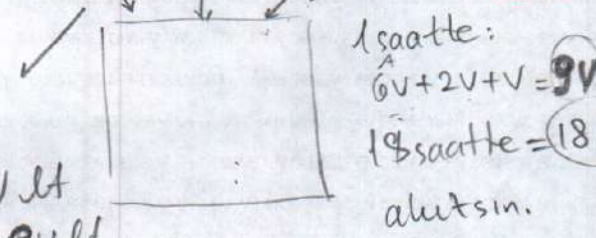 1 saatte:
A
6V+2V+V = 9V
18 saatte = 18
lt
lt
akıtsın.